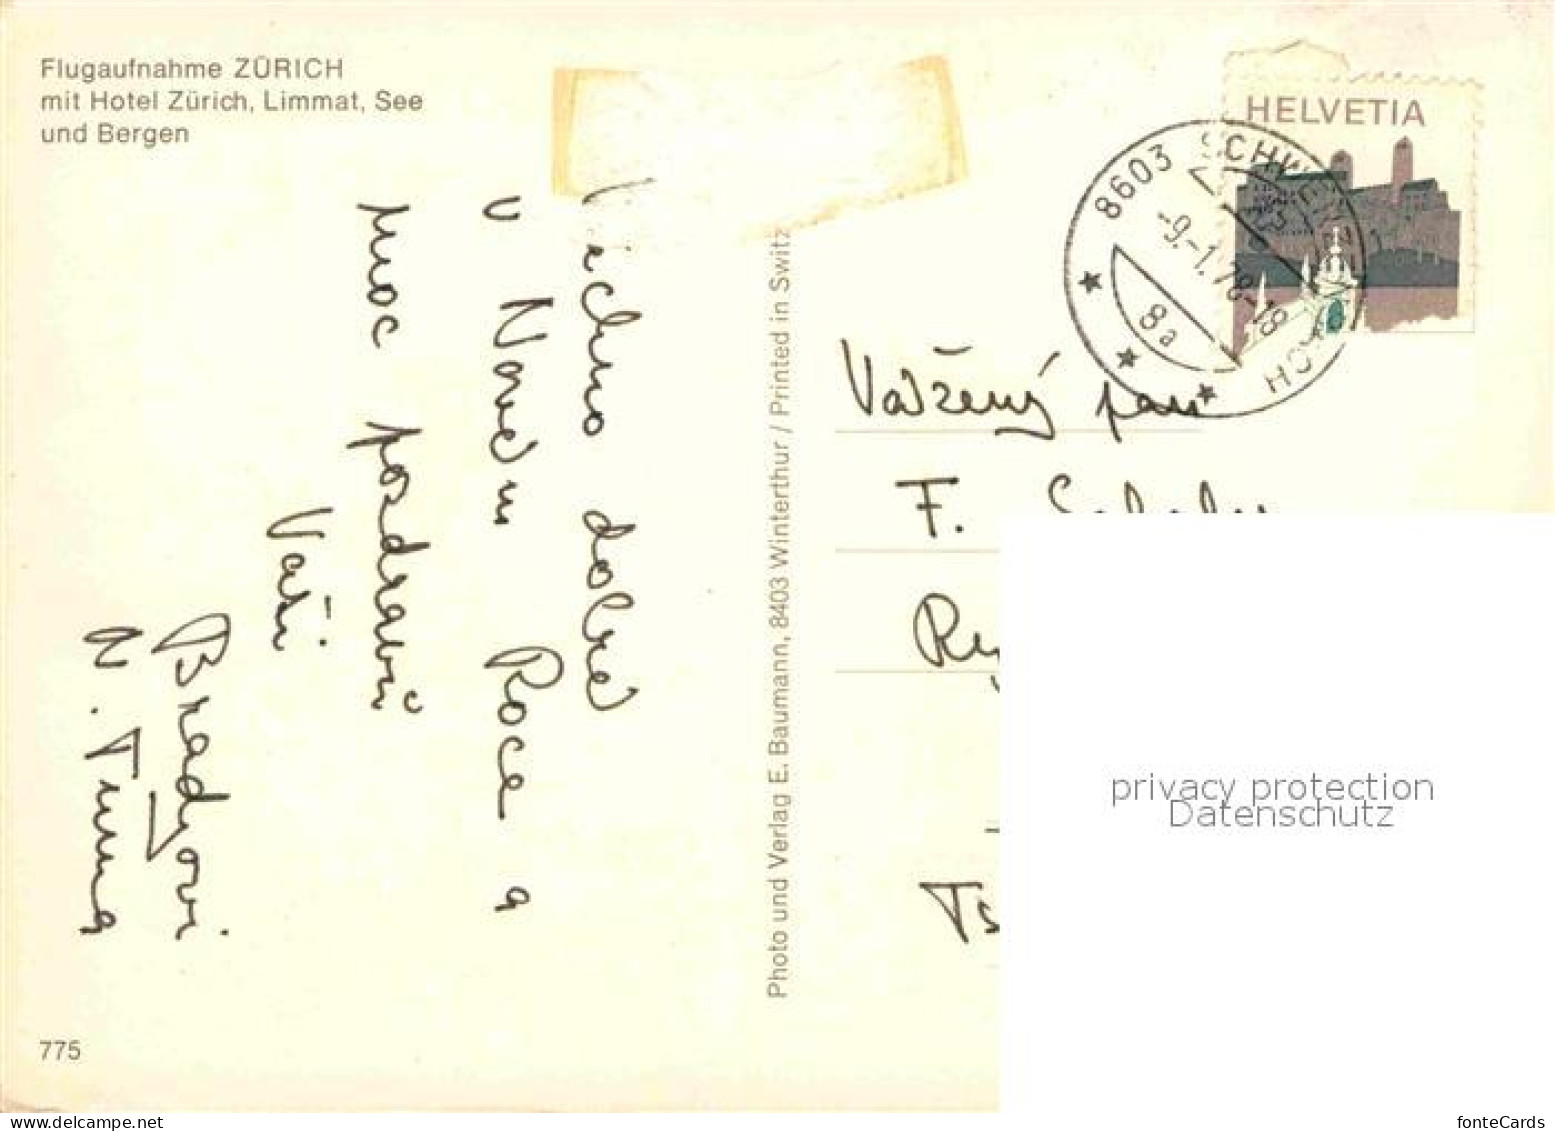 Flugaufnahme ZÜRICH
mit Hotel Zürich, Limmat, See
und Bergen
Všechno dobré
v Novém Roce a
moc pozdravů
Vaši
N. Tuma
775
Photo und Verlag E. Baumann, 8403 Winterthur / Printed in Switz
HELVETIA
8603 SCHWERZENBACH
-9.-1.78-18
8a
Vážený pan
F.
privacy protection
Datenschutz
fonteCards